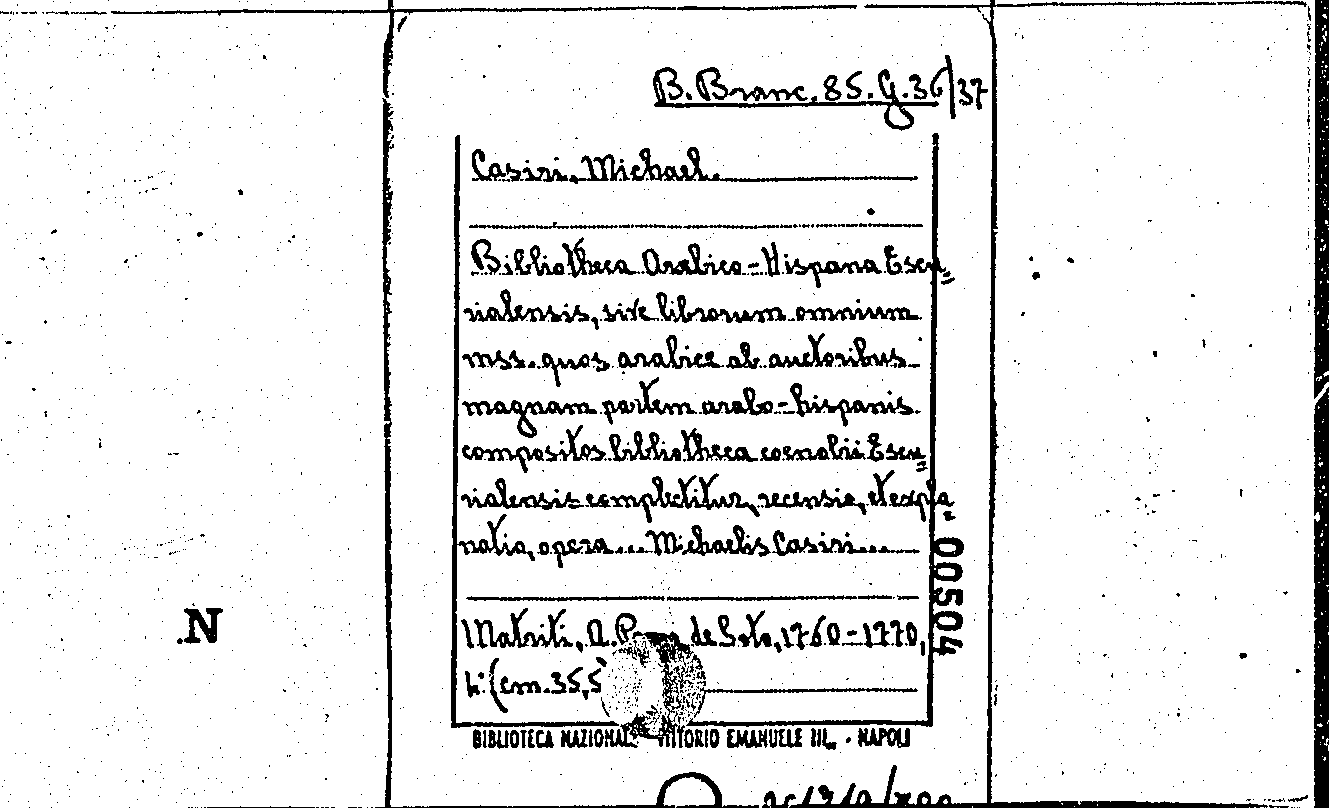 B. Branc. 85. G. 36/37
Casiri, Michael.
Bibliotheca Arabico-Hispana Escu=
rialensis, sive librorum omnium
mss. quos arabice ab auctoribus
magnam partem arabo-hispanis
compositos bibliotheca coenobii Escu=
rialensis complectitur, recensio, et expla
natio, opera... Michaelis Casiri...
00504
N
Matriti, A. de Soto, 1760-1770,
(cm. 35,5
BIBLIOTECA NAZIONALE VITTORIO EMANUELE III. - NAPOLI